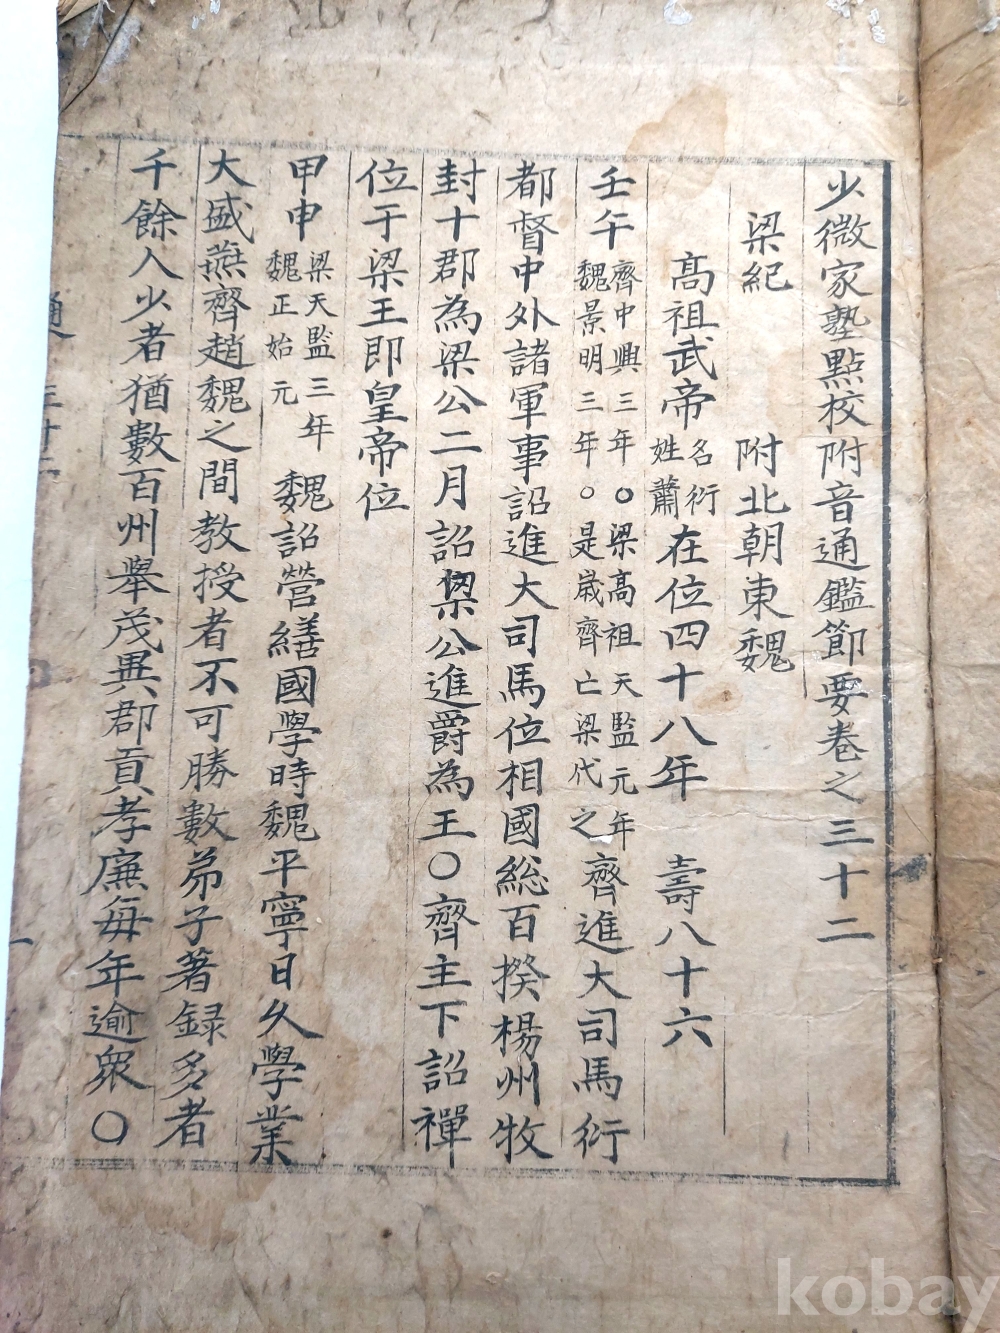 少微家塾點校附音通鑑節要卷之三十二
梁紀 附北朝東魏
高祖武帝 名衍姓蕭 在位四十八年 壽八十六
壬午 齊中興三年○梁高祖天監元年魏景明三年○是歲齊亡梁代之 齊進大司馬衍
都督中外諸軍事詔進大司馬位相國総百揆楊州牧
封十郡為梁公二月詔梁公進爵為王○齊主下詔禪
位于梁王即皇帝位
甲申 梁天監三年魏正始元 魏詔營繕國學時魏平寧日久學業
大盛燕齊趙魏之間教授者不可勝數弟子著録多者
千餘人少者猶數百州舉茂異郡貢孝廉每年逾衆○
通 三十二
一
kobay